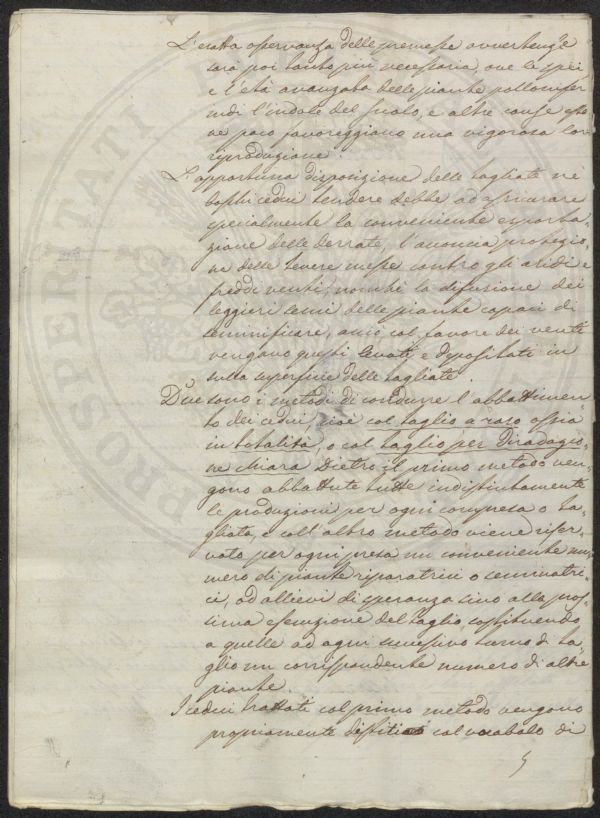 L'esatta osservanza delle premesse avvertenze
sarà poi tanto più necessaria, ove la spe
e l'età avanzata delle piante
l'indole del suolo, e altre cause
poco favoreggiano una vigorosa loro
riproduzione.
L'opportuna disposizione delle tagliate ne
boschi cedui tendere debbe ad assicurare
specialmente la conveniente esporta-
zione delle derrate, l'annoncia protezio-
ne delle tenere messe contro gli aridi e
freddi venti, nonché la difusione dei
leggieri semi delle piante capaci di
seminificare, onde col favore dei venti
vengano questi levati e depositati in
sulla superficie delle tagliate.
Due sono i metodi di condurre l'abbattimen-
to dei cedui, cioè col taglio a raso ossia
in totalità, o col taglio per Diradagio-
ne chiara Dietro il primo metodo ven-
gono abbattute tutte indistintamente
le produzioni per ogni compresa o ta-
gliata, e coll'altro metodo viene riser-
vato per ogni presa un conveniente nu-
mero di piante riparatrici o seminatri-
ci, ad allievi di speranza sino alla pros-
sima esecuzione del taglio, sostituendo
a quelle ad ogni successivo turno di ta-
glio un corrispondente numero di altre
piante.
I cedui trattati col primo metodo vengono
propriamente col vocabolo di
PROSPERITATI